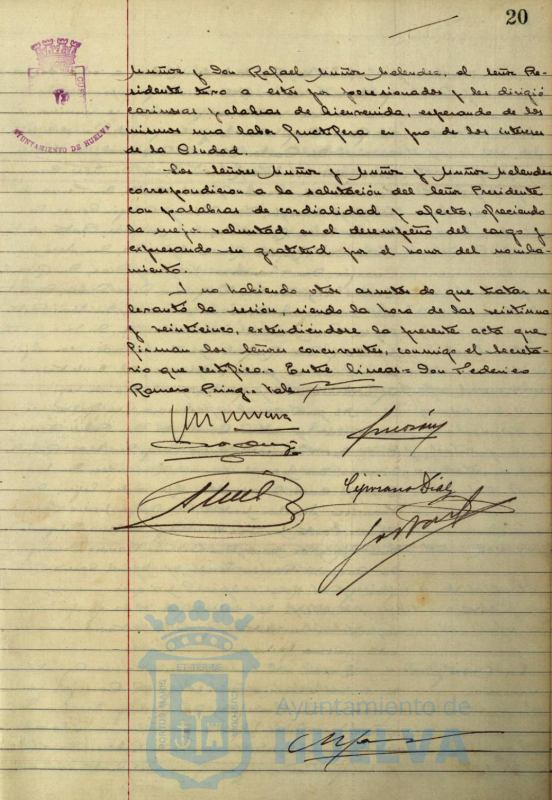 20
AYUNTAMIENTO DE HUELVA
Muñoz y Don Rafael Muñoz Melendez, el señor Pre-
sidente tuvo a estos por posesionados y les dirigió
cariñosas palabras de bienvenida, esperando de los
mismos una labor fructífera en pro de los intereses
de la Ciudad.
Los señores Muñoz y Muñoz y Muñoz Melendez
correspondieron a la salutación del señor Presidente
con palabras de cordialidad y afecto, ofreciendo
la mejor voluntad en el desempeño del cargo y
expresando su gratitud por el honor del nombra-
miento.
Y no habiendo otros asuntos de que tratar se
levantó la sesión, siendo la hora de las veintiuna
y veinticinco, extendiéndose la presente acta que
firman los señores concurrentes, conmigo el Secreta-
rio que certifico.- Entre lineas= Don Federico
Romero = Vale
Cipriano Diaz
Ayuntamiento de
HUELVA